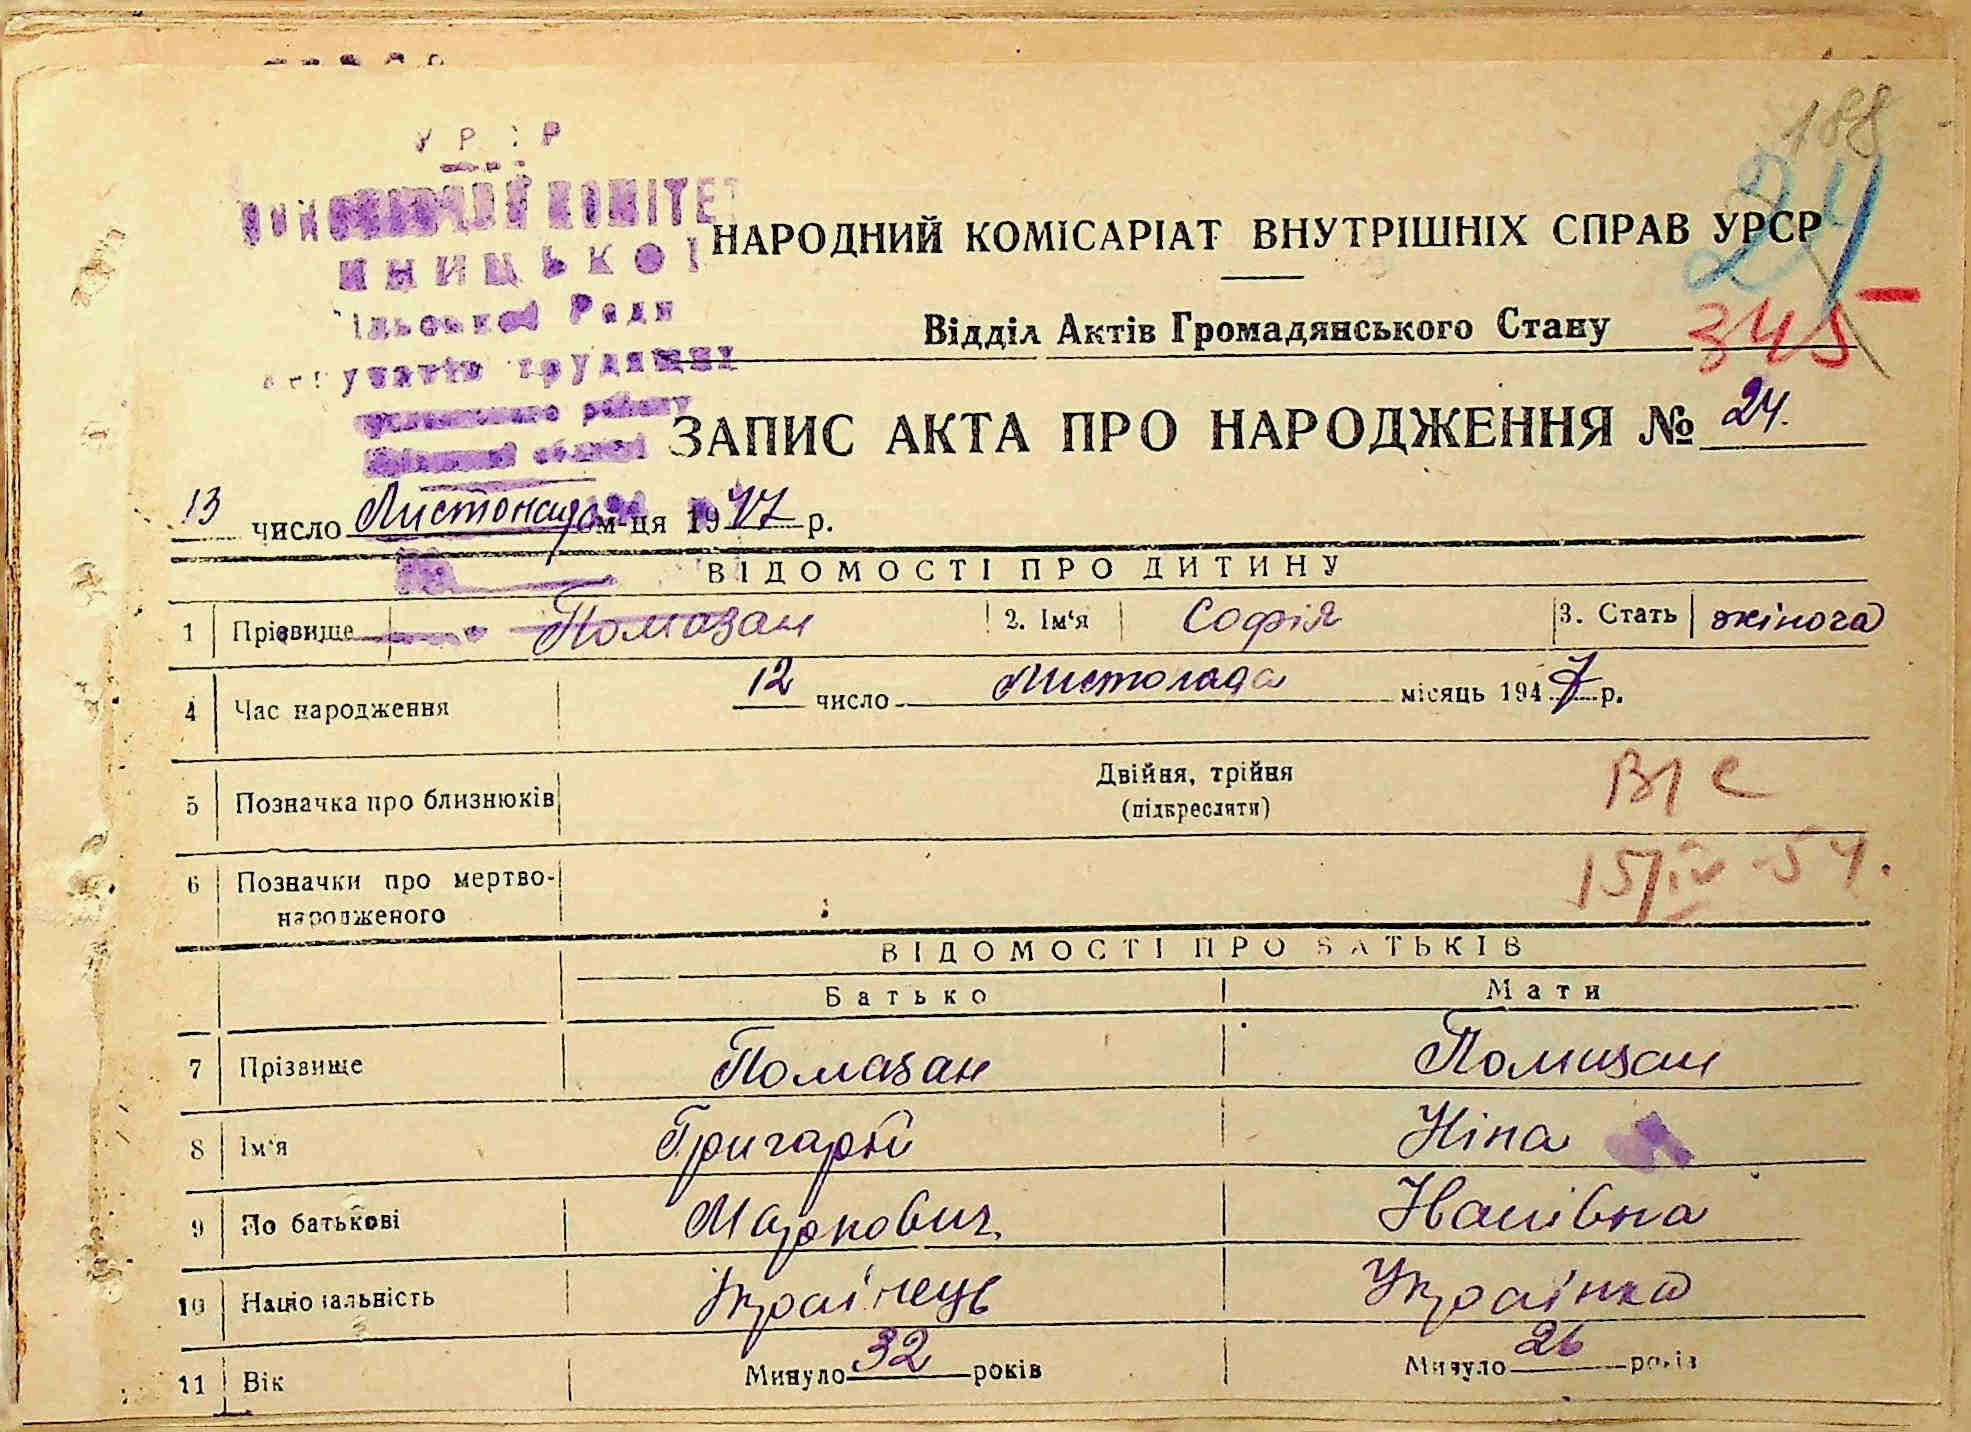 188
24
УРСР
ВИКОНАВЧИЙ КОМІТЕТ
НАРОДНИЙ КОМІСАРІАТ ВНУТРІШНІХ СПРАВ УРСР
Ради
Відділ Актів Громадянського Стану
345
трудящих
району
ЗАПИС АКТА ПРО НАРОДЖЕННЯ № 24.
13 число Листопада м-ця 1947 р.
ВІДОМОСТІ ПРО ДИТИНУ
1 Прізвище Помазан 2. Ім'я Софія 3. Стать жіноча
4 Час народження 12 число Листопада місяць 1947 р.
5 Позначка про близнюків Двійня, трійня
(підкреслити)
6 Позначки про мертво-
народженого
15/IV-54.
ВІДОМОСТІ ПРО БАТЬКІВ
Батько Мати
7 Прізвище Помазан Помазан
8 Ім'я Григарій Ніна
9 По батькові Маркович Іванівна
10 Національність Українець Українка
11 Вік Минуло 32 років Минуло 26 років